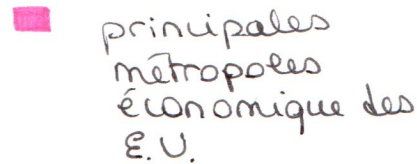 principales
métropoles
économique des
E.U.